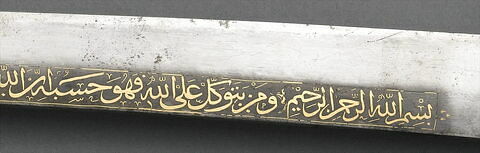 بسم الله الرحمن الرحيم ومن يتوكل على الله فهو حسبه ان الله